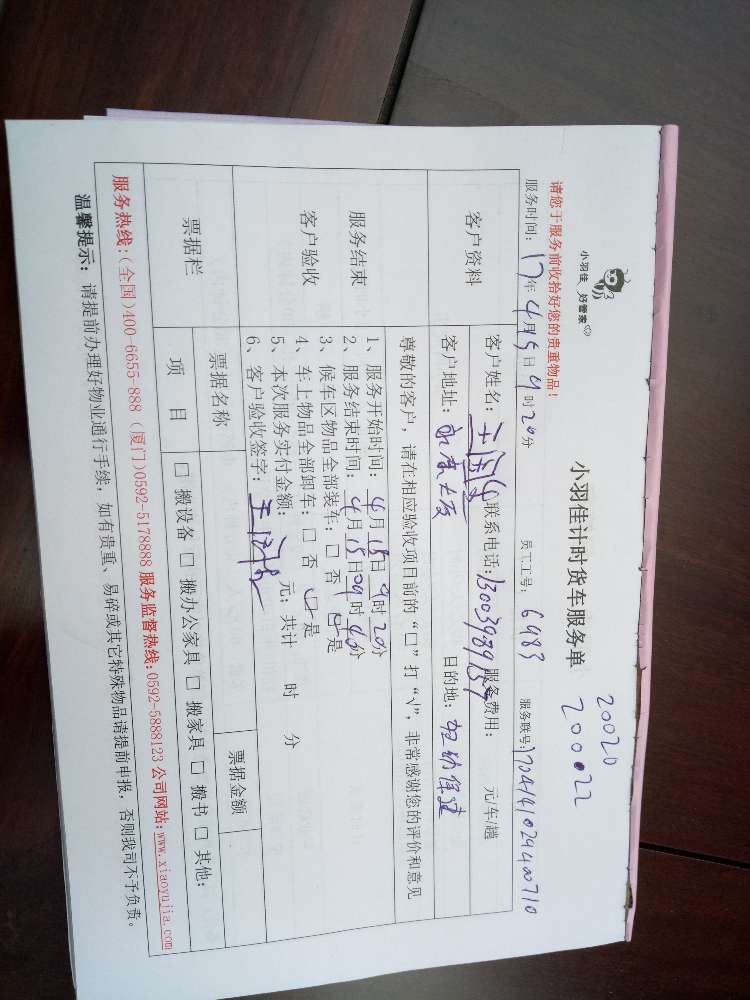 小羽佳 好管家
小羽佳计时货车服务单
20020
200022
请您于服务前收拾好您的贵重物品！
服务时间：17年4月15日9时20分 员工工号：6983 服务联号：
客户资料
客户姓名： 联系电话： 服务费用： 元/车/趟
客户地址： 目的地：
服务结束
客户验收
尊敬的客户，请在相应验收项目前的“□”打“√”，非常感谢您的评价和意见
1、服务开始时间：4月15日9时20分
2、服务结束时间：4月15日09时40分
3、候车区物品全部装车：□ 否 □ 是
4、车上物品全部卸车：□ 否 □ 是
5、本次服务实付金额： 元；共计 时 分
6、客户验收签字：
票据栏
票据名称 票据金额
项 目 □ 搬设备 □ 搬办公家具 □ 搬家具 □ 搬书 □ 其他：
服务热线：(全国)400-6655-888 (厦门)0592-5178888 服务监督热线：0592-5888123 公司网站：www.xiaoyujia.com
温馨提示：请提前办理好物业通行手续，如有贵重、易碎或其它特殊物品请提前申报，否则我司不予负责。